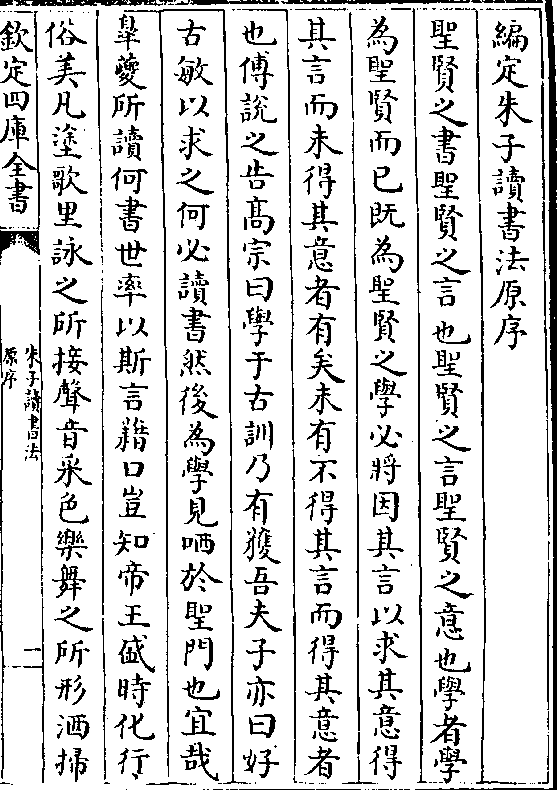 編定朱子讀書法原序
聖賢之書聖賢之言也聖賢之言聖賢之意也學者學
為聖賢而已既為聖賢之學必將因其言以求其意得
其言而未得其意者有矣未有不得其言而得其意者
也傅說之告髙宗曰學于古訓乃有獲吾夫子亦曰好
古敏以求之何必讀書然後為學見哂於聖門也宜哉
臯夔所讀何書世率以斯言藉口豈知帝王盛時化行
俗美凡塗歌里詠之所接聲音采色樂舞之所形洒掃
欽定四庫全書
朱子讀書法
原序
一